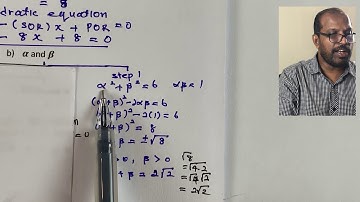 = 8
dratic equation
- (SOR) x + POR = 0
- 8x + 8 = 0
b) α and β
step 1
α² + β² = 6 αβ = 1
+ β)² - 2αβ = 6
+ β)² - 2(1) = 6
+ β)² = 8
= 0
β = ±√8
> 0, β > 0
β = 2√2
√8
= √4·2
= √4 √2
= 2√2